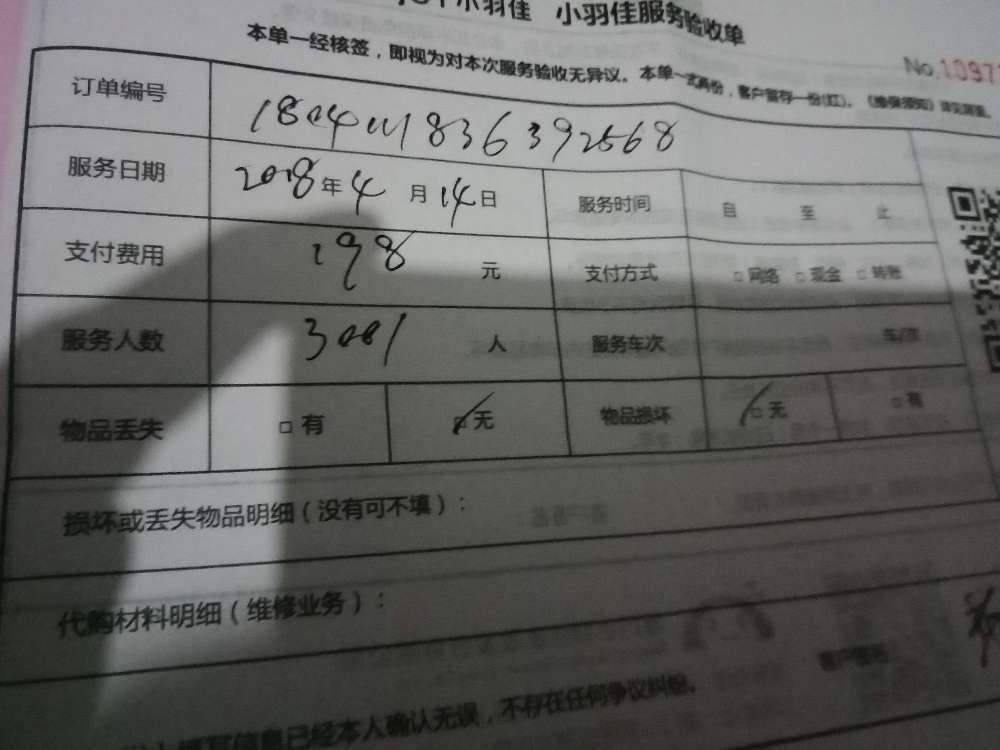 小羽佳 小羽佳服务验收单
本单一经核签，即视为对本次服务验收无异议。本单一式两份，客户留存一份(红)。《维保须知》详见背面。
No.1097
订单编号 180411836392568
服务日期 2018年4月14日 服务时间 自 至 止
支付费用 198 元 支付方式 □网络 □现金 □转账
服务人数 3001 人 服务车次 车/次
物品丢失 □有 ☑无 物品损坏 ☑无 □有
损坏或丢失物品明细（没有可不填）：
代购材料明细（维修业务）：
客户签名：
填写信息已经本人确认无误，不存在任何争议纠纷。